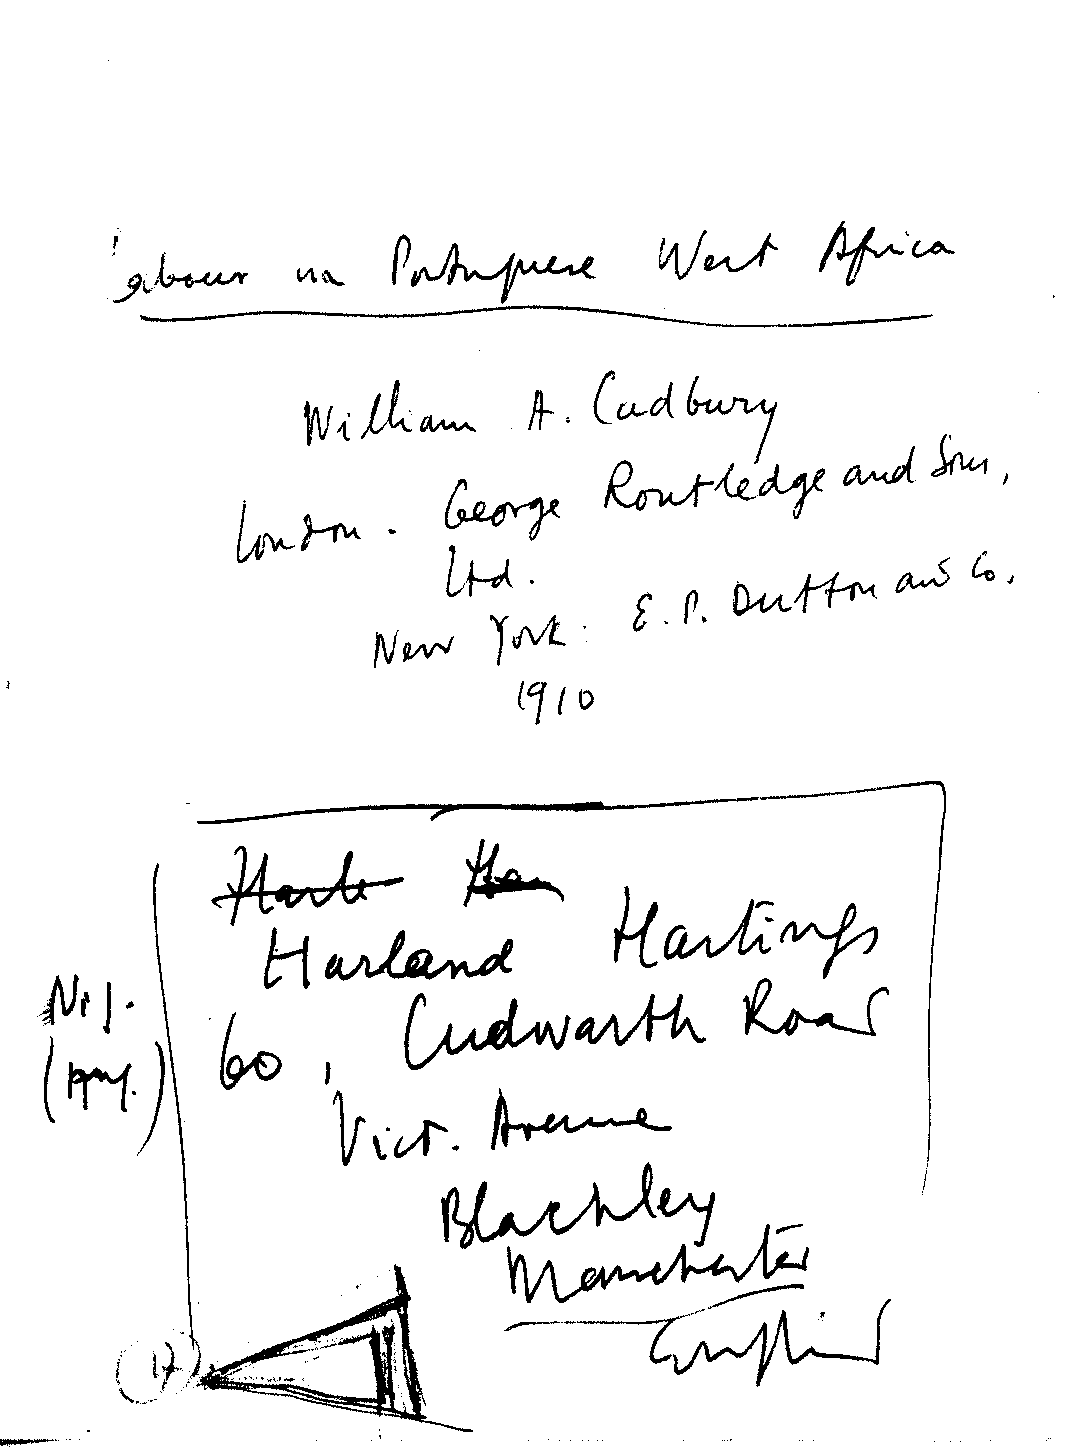 Labour in Portuguese West Africa
William A. Cadbury
London. George Routledge and Sons,
Ltd.
New York: E. P. Dutton and Co.
1910
Harland Hastings
60, Cudworth Road
Vict. Avenue
Blackley
Manchester
England